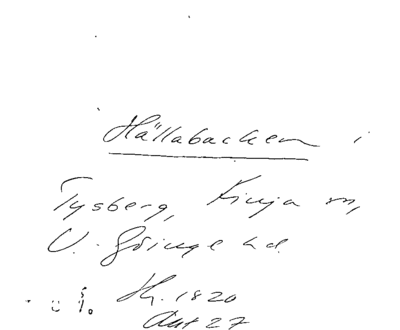 Hällabacken i
Tysberg, Kinja sn,
V. Göinge hd.
Hy. 1820
Ant 27